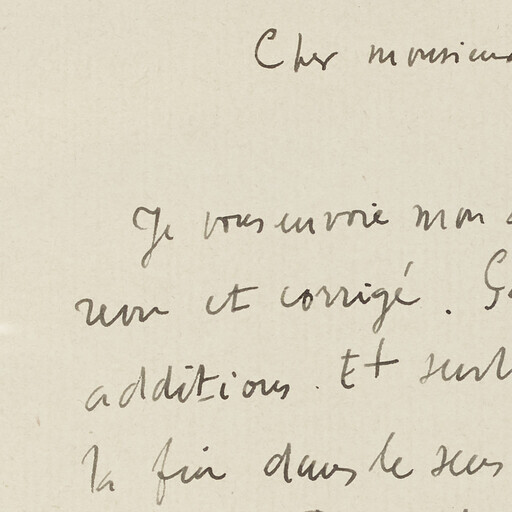 Cher monsieur
Je vous envoie mon
revu et corrigé.
additions. Et surt
la fin dans le sens